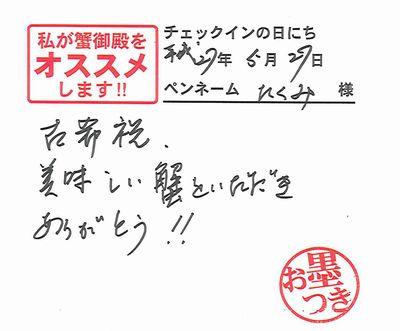 私が蟹御殿を
オススメ
します!!
チェックインの日にち
平成27年 5月27日
ペンネーム たくみ 様
古希祝、
美味しい蟹をいただき
ありがとう!!
お墨つき